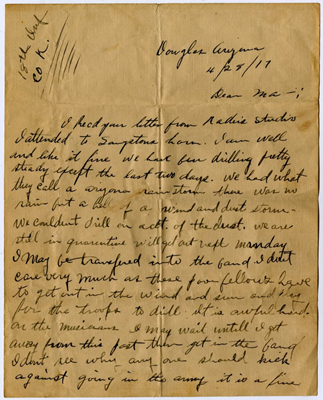 18th Inf
Co K.
Douglas Arizona
4/28/17
Dear Ma—;
I Recd your letter from Radice studio
I attended to Saxetone horn. I am well
and like it fine we have been drilling pretty
steady except the last two days. We had what
they call a arizona rainstorm there was no
rain but a Hell of a wind and dust storm.
We couldent drill on acct. of the dust. we are
still in quarentine will get out next Monday
I may be transfered into the band I dont
care very much as these poor fellows have
to get out in the wind and sun and play
for the troops to drill it is awful hard
on the musicians I may wait untill I get
away from this post then get in the band
I dont see why any one should kick
against going in the army it is a fine